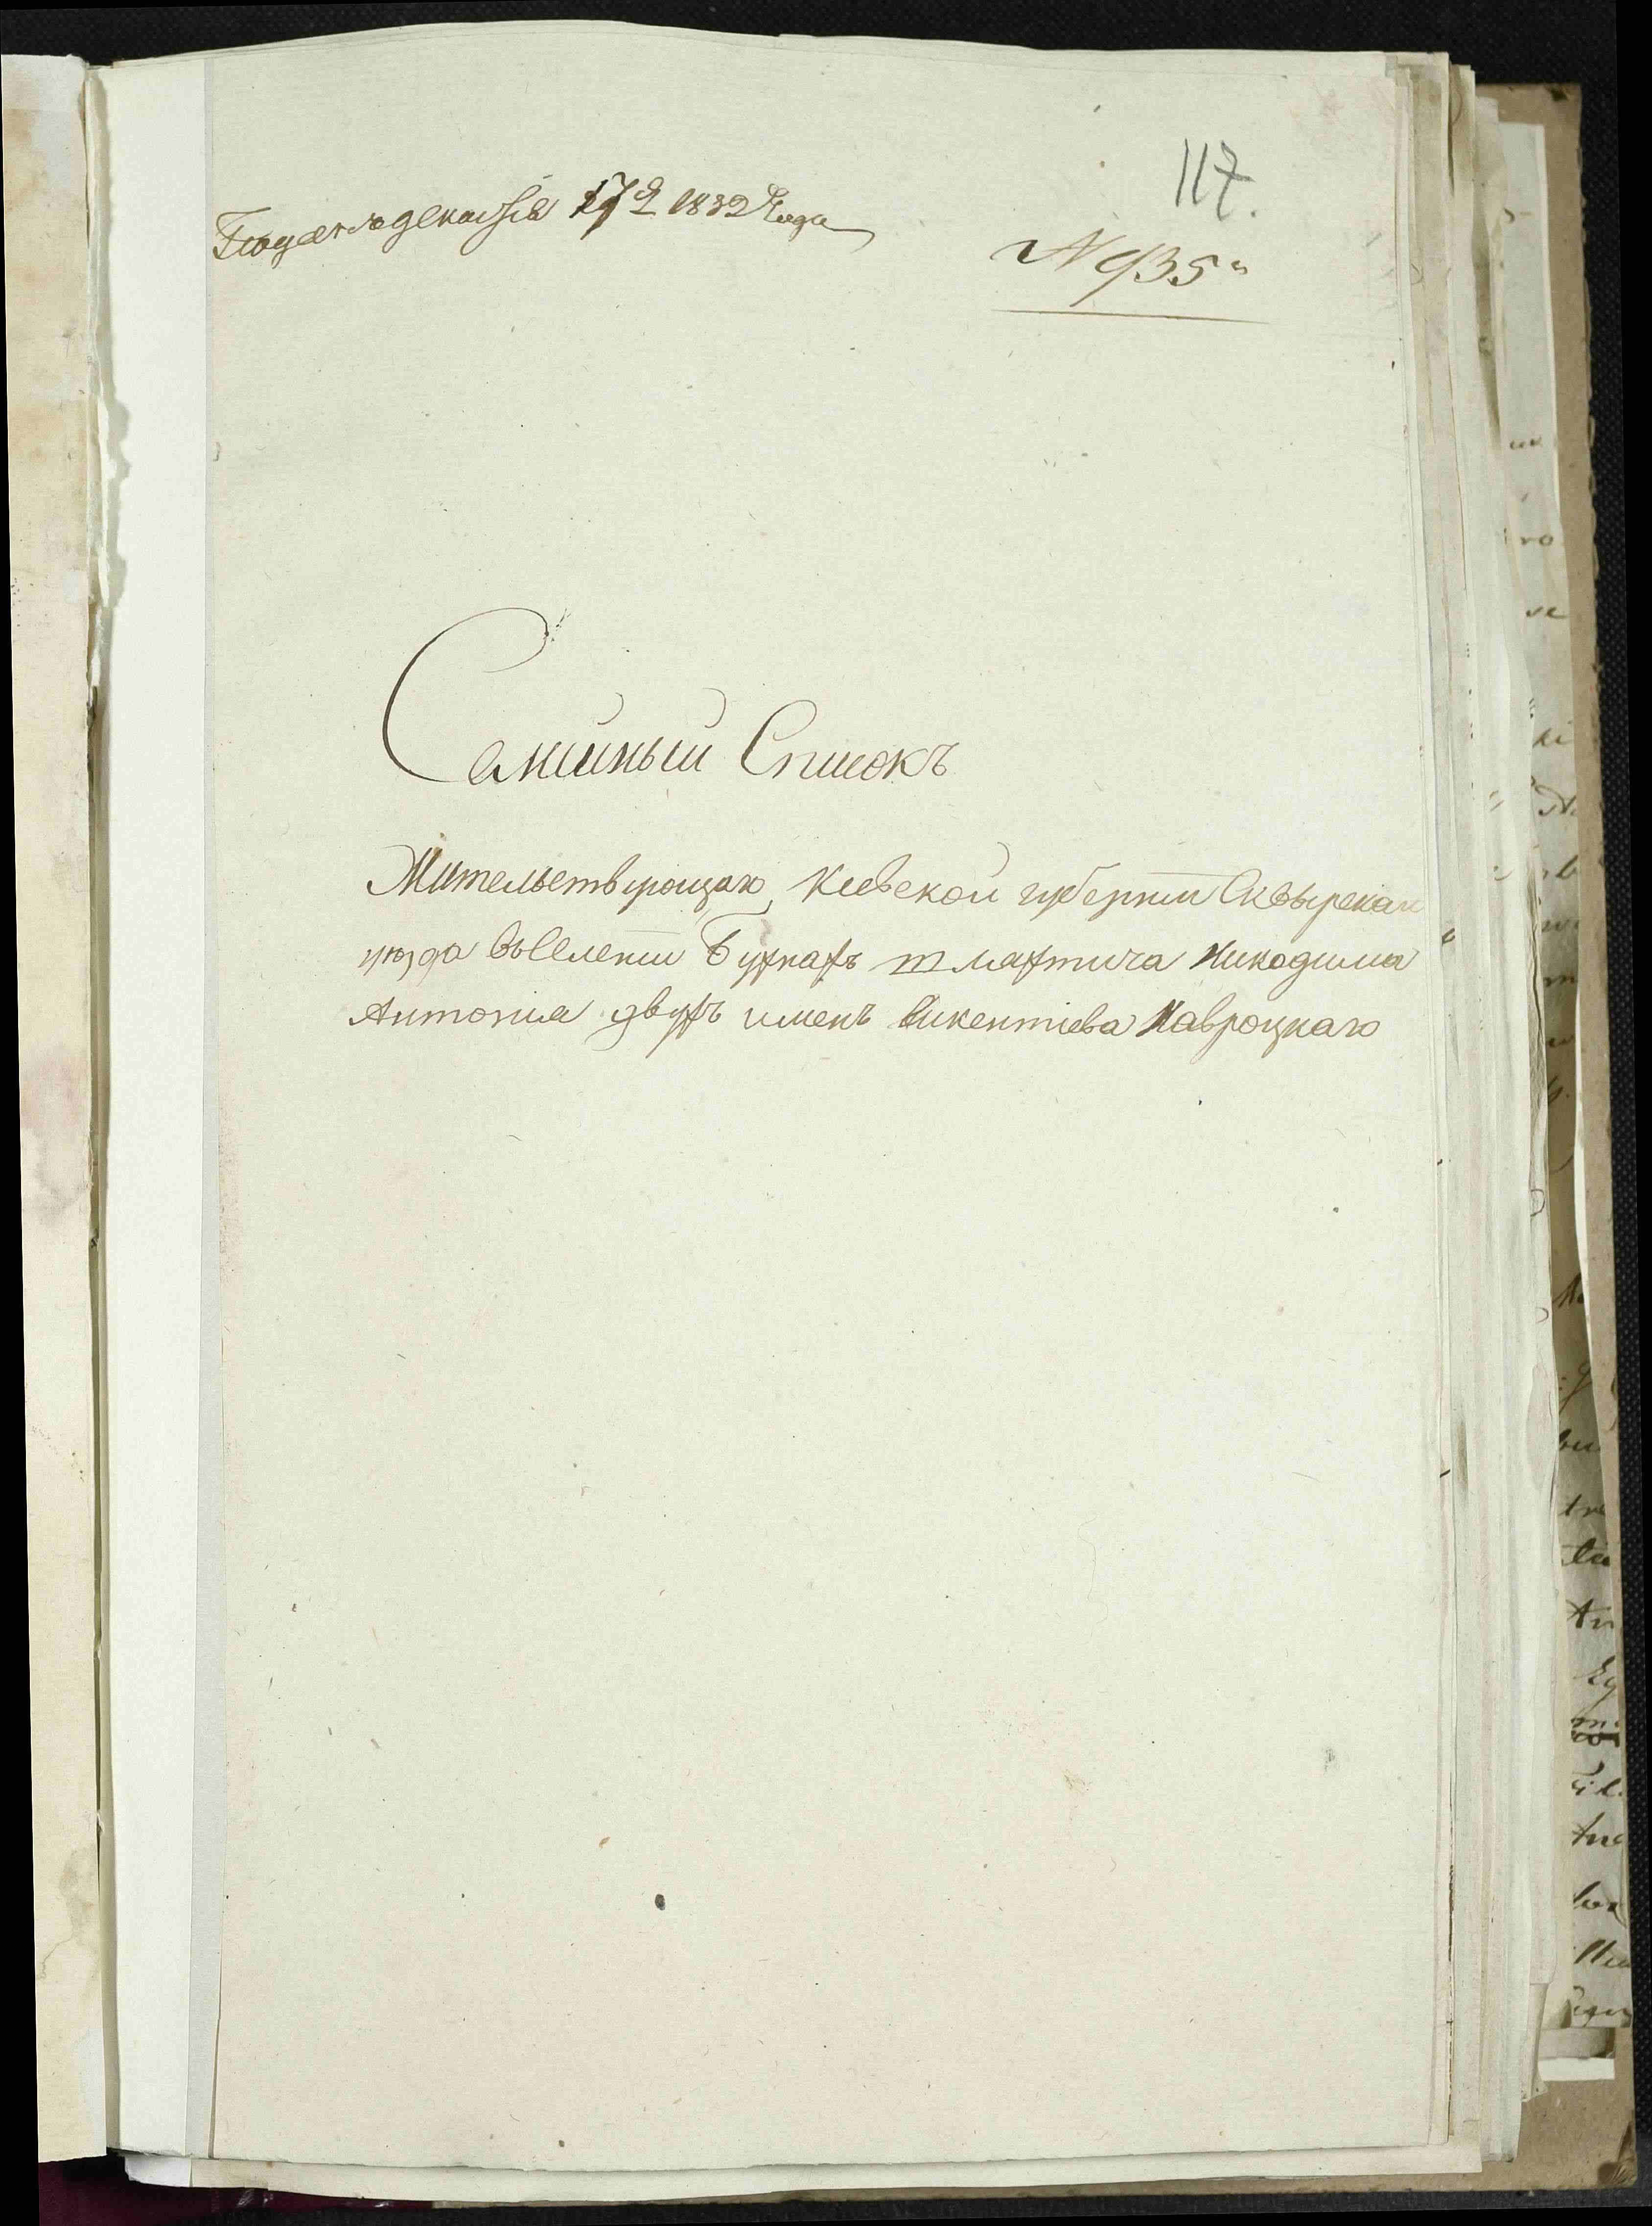 117.
Подано декабря 17го 1832 Года
N 935"
Семиный Списокъ
Жительствующаго Киевской губернии Сквырскаго
уезда Въ Селении Буркахъ шляхтича Никодима
Антония двухъ именъ Викентиева Навроцкаго